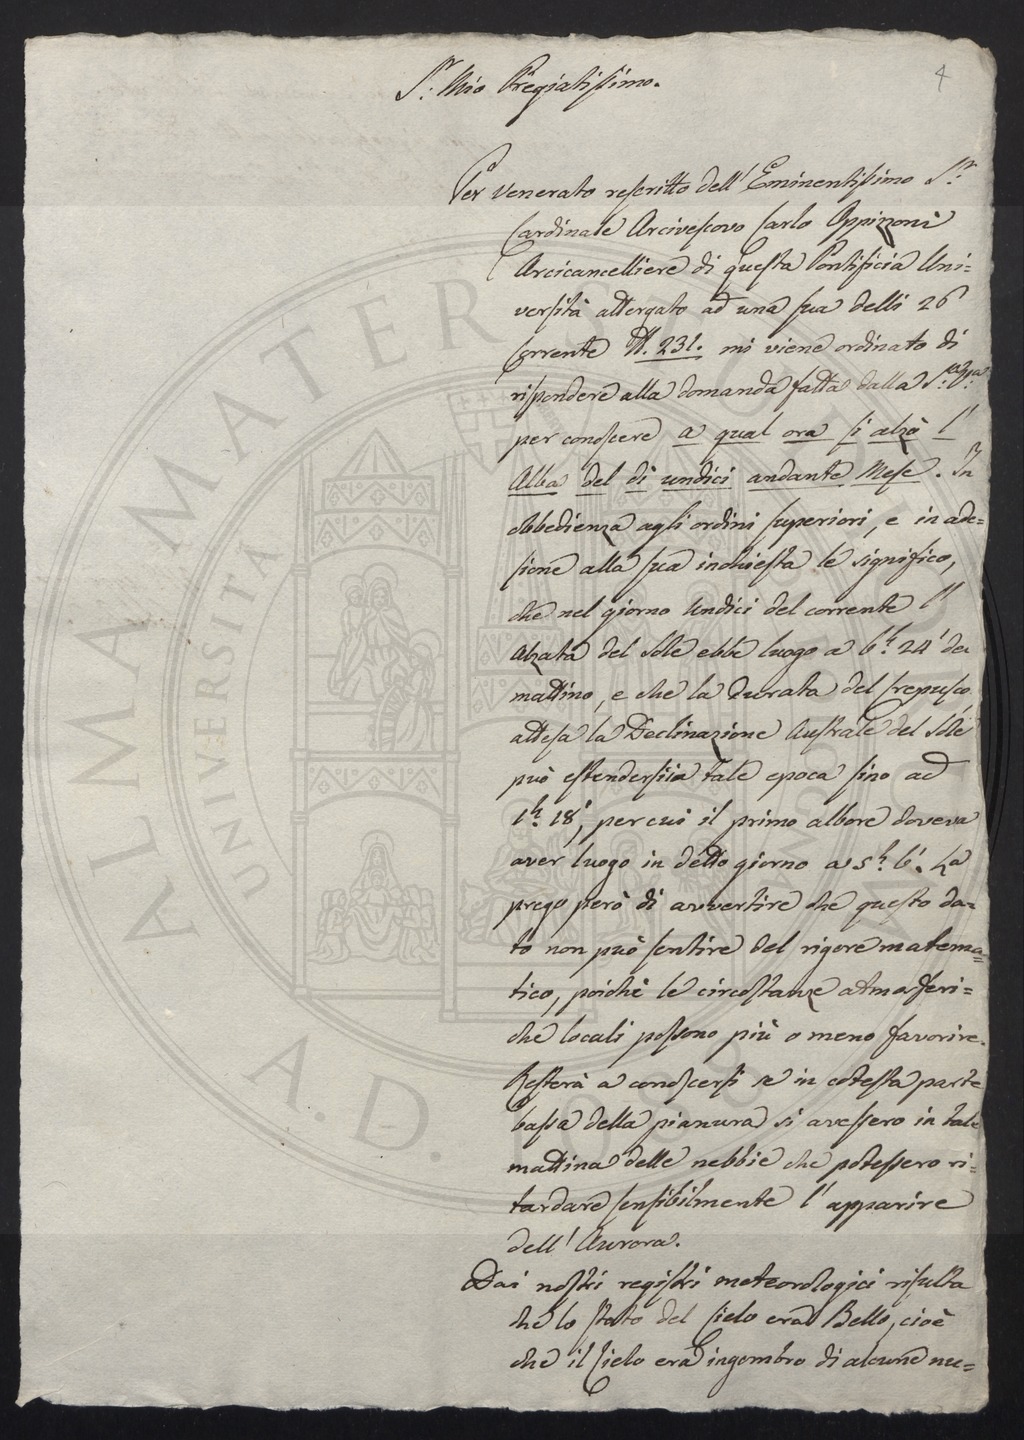 4
S.r Mio Pregiatissimo.
Per venerato rescritto dell'Eminentissimo S.r
Cardinale Arcivescovo Carlo Oppizzoni
Arcicancelliere di questa Pontificia Uni=
versità attergato ad una sua delli 26
Corrente N. 231. mi viene ordinato di
rispondere alla domanda fatta dalla S.a V.a
per conoscere a qual ora si alzò l'
Alba del dì undici andante Mese. In
obbedienza agli ordini superiori, e in ade=
sione alla sua inchiesta le significo,
che nel giorno Undici del corrente l'
alzata del Sole ebbe luogo a 6.h 24' del
mattino, e che la durata del Crepusco
attesa la Declinazione Australe del Sole
può estendersi in tale epoca sino ad
1.h 18', per cui il primo albore doveva
aver luogo in detto giorno a 5.h 6'. La
prego però di avvertire che questo da=
to non può sentire del rigore matema=
tico, poichè le circostanze atmosferi=
che locali possono più o meno favorire.
Resterà a conoscersi se in cotesta parte
bassa della pianura si avessero in tale
mattina delle nebbie che potessero ri=
tardare sensibilmente l'apparire
dell'Aurora.
Dai nostri registri meteorologici risulta
che lo stato del Cielo era Bello, cioè
che il Cielo era ingombro di alcune nu=
ALMA MATER STUDIORUM
UNIVERSITÀ DI BOLOGNA
A.D. 1088